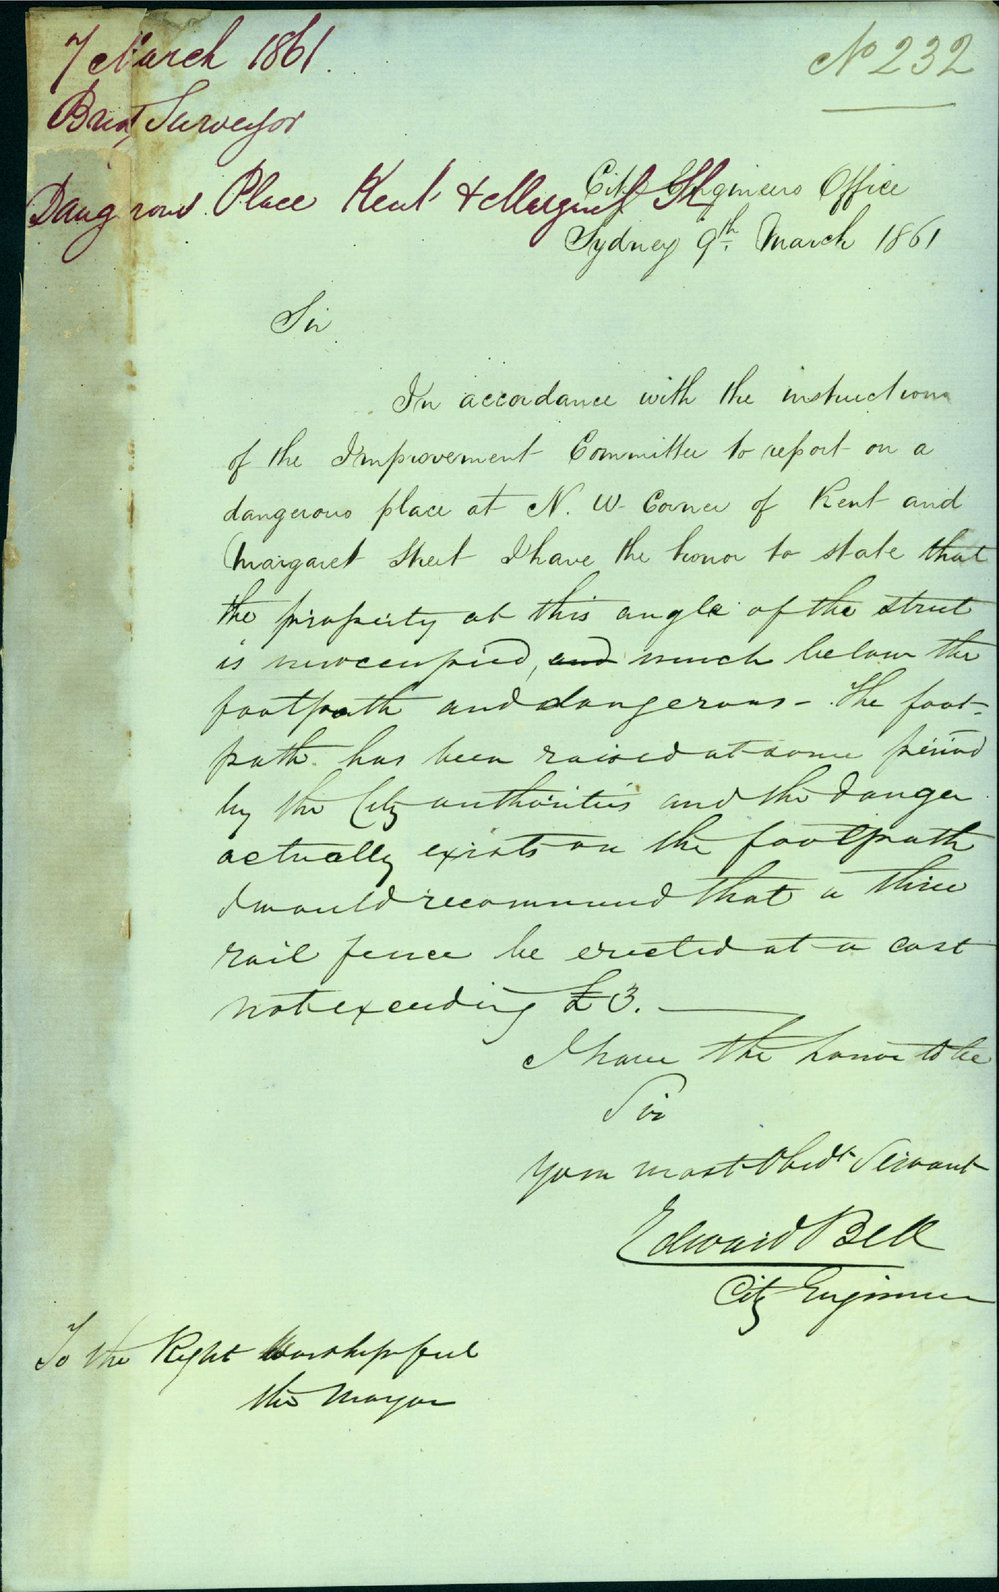 7 March 1861.
No 232
Surveyor
Dangerous Place Kent & Margaret St
City Engineers Office
Sydney 9th. March 1861
Sir
In accordance with the instructions
of the Improvement Committee to report on a
dangerous place at N. W. Corner of Kent and
Margaret Street I have the honor to state that
the property at this angle of the street
is unoccupied, and much below the
footpath and dangerous - The foot-
path has been raised at some period
by the City authorities and the danger
actually exists on the footpath
I would recommend that a three
rail fence be erected at a cost
not exceeding £3.
I have the honor to be
Sir
Your most Obedt Servant
Edward Bell
City Engineer
To the Right Worshipful
the Mayor